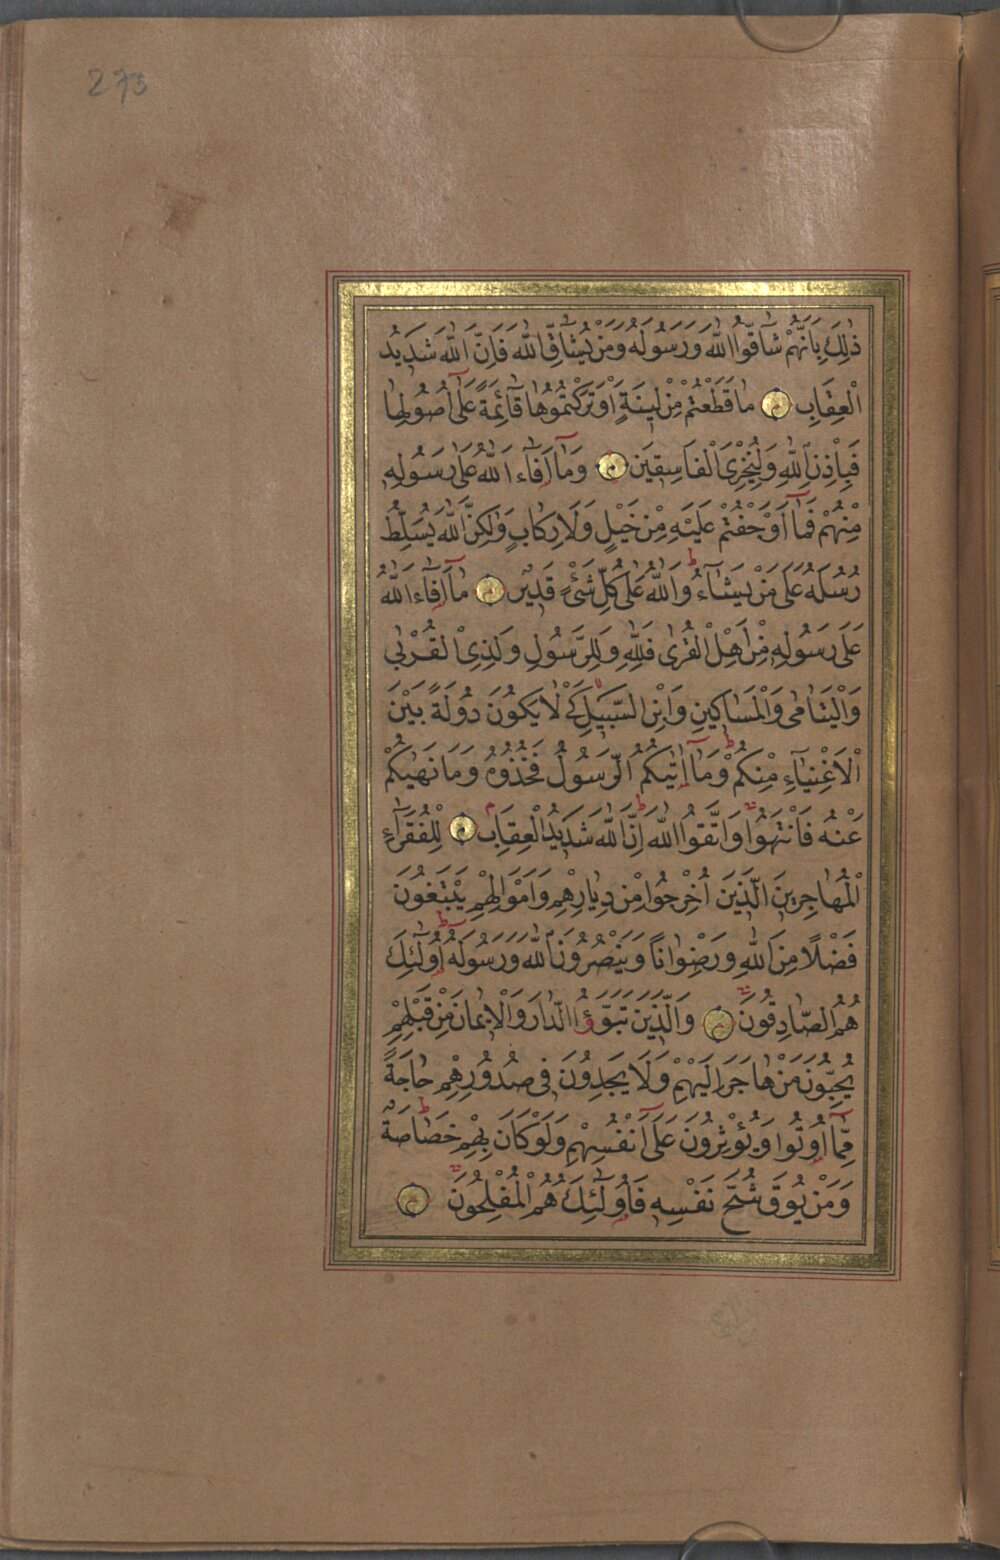 273
ذٰلِكَ بِاَنَّهُمْ شَٓاقُّوا اللّٰهَ وَرَسُولَهُ وَمَنْ يُشَٓاقِّ اللّٰهَ فَاِنَّ اللّٰهَ شَدٖيدُ
الْعِقَابِ مَا قَطَعْتُمْ مِنْ لٖينَةٍ اَوْ تَرَكْتُمُوهَا قَٓائِمَةً عَلٰٓى اُصُولِهَا
فَبِاِذْنِ اللّٰهِ وَلِيُخْزِىَ الْفَاسِقٖينَ وَمَٓا اَفَٓاءَ اللّٰهُ عَلٰى رَسُولِهٖ
مِنْهُمْ فَمَٓا اَوْجَفْتُمْ عَلَيْهِ مِنْ خَيْلٍ وَلَا رِكَابٍ وَلٰكِنَّ اللّٰهَ يُسَلِّطُ
رُسُلَهُ عَلٰى مَنْ يَشَٓاءُ وَاللّٰهُ عَلٰى كُلِّ شَىْءٍ قَدٖيرٌ مَٓا اَفَٓاءَ اللّٰهُ
عَلٰى رَسُولِهٖ مِنْ اَهْلِ الْقُرٰى فَلِلّٰهِ وَلِلرَّسُولِ وَلِذِى الْقُرْبٰى
وَالْيَتَامٰى وَالْمَسَاكٖينِ وَابْنِ السَّبٖيلِ كَىْ لَا يَكُونَ دُولَةً بَيْنَ
الْاَغْنِيَٓاءِ مِنْكُمْ وَمَٓا اٰتٰيكُمُ الرَّسُولُ فَخُذُوهُ وَمَا نَهٰيكُمْ
عَنْهُ فَانْتَهُوا وَاتَّقُوا اللّٰهَ اِنَّ اللّٰهَ شَدٖيدُ الْعِقَابِ لِلْفُقَرَٓاءِ
الْمُهَاجِرٖينَ الَّذٖينَ اُخْرِجُوا مِنْ دِيَارِهِمْ وَاَمْوَالِهِمْ يَبْتَغُونَ
فَضْلًا مِنَ اللّٰهِ وَرِضْوَانًا وَيَنْصُرُونَ اللّٰهَ وَرَسُولَهُ اُولٰٓئِكَ
هُمُ الصَّادِقُونَ وَالَّذٖينَ تَبَوَّؤُا الدَّارَ وَالْاٖيمَانَ مِنْ قَبْلِهِمْ
يُحِبُّونَ مَنْ هَاجَرَ اِلَيْهِمْ وَلَا يَجِدُونَ فٖى صُدُورِهِمْ حَاجَةً
مِمَّٓا اُوتُوا وَيُؤْثِرُونَ عَلٰٓى اَنْفُسِهِمْ وَلَوْ كَانَ بِهِمْ خَصَاصَةٌ
وَمَنْ يُوقَ شُحَّ نَفْسِهٖ فَاُولٰٓئِكَ هُمُ الْمُفْلِحُونَ